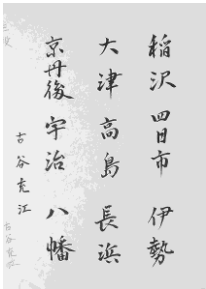 稲沢 四日市 伊勢
大津 高島 長浜
京丹後 宇治 八幡
古谷充江